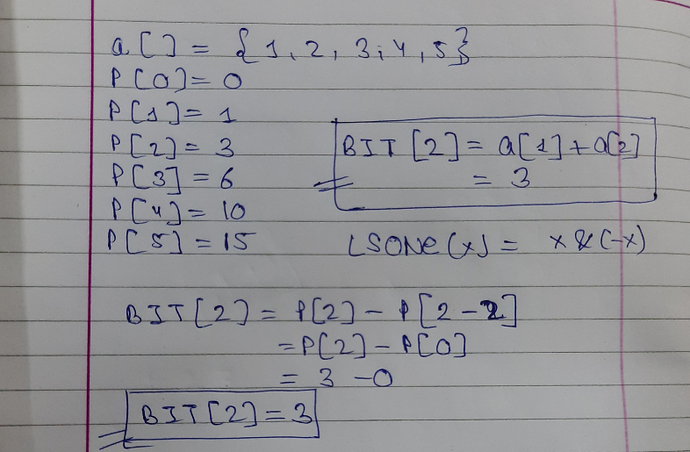 a[] = {1, 2, 3, 4, 5}
P[0] = 0
P[1] = 1
P[2] = 3
P[3] = 6
P[4] = 10
P[5] = 15
BIT[2] = a[1] + a[2]
= 3
LSONe(x) = x & (-x)
BIT[2] = P[2] - P[2 - 2]
= P[2] - P[0]
= 3 - 0
BIT[2] = 3